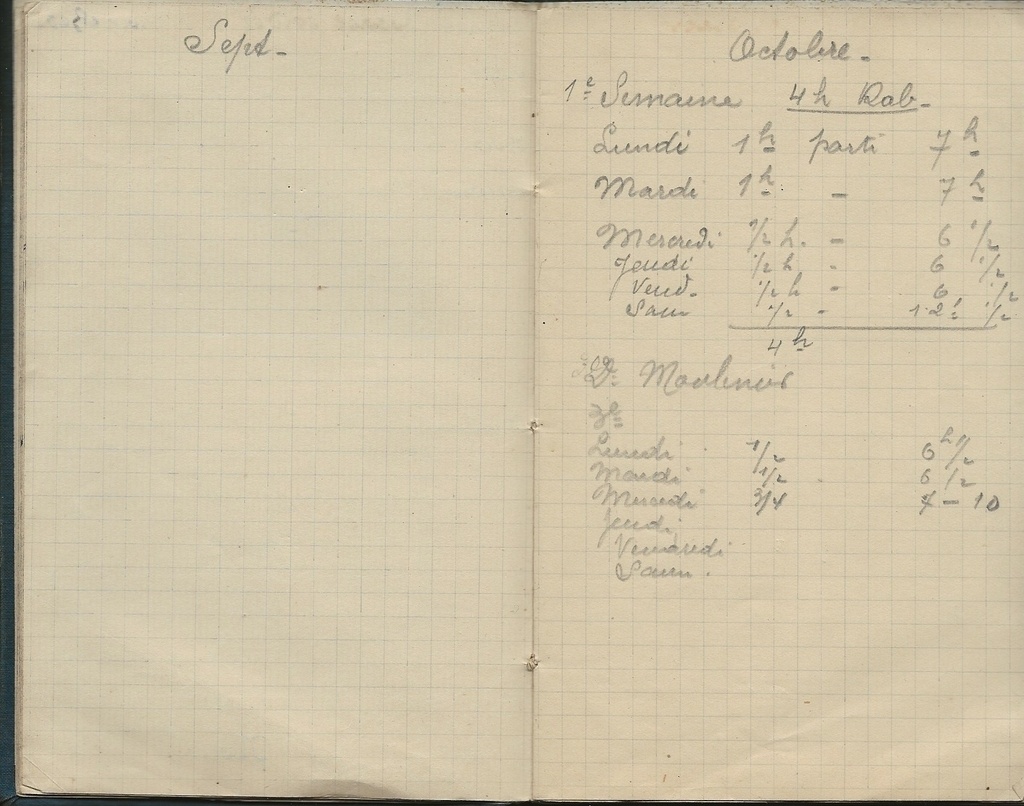 Sept -
Octobre -
1e Semaine 4h Rab -
Lundi 1h parti 7h
Mardi 1h - 7h
Mercredi 1/2 h. - 6 1/2
Jeudi 1/2 h - 6 1/2
Vend. 1/2 h - 6 1/2
Sam 1/2 - 12 1/2
4h
Dr
Lundi 1/2 6h 1/2
Mardi 1/2 . 6 1/2
Mercredi 3/4 7 - 10
Jeudi
Vendredi
Sam .